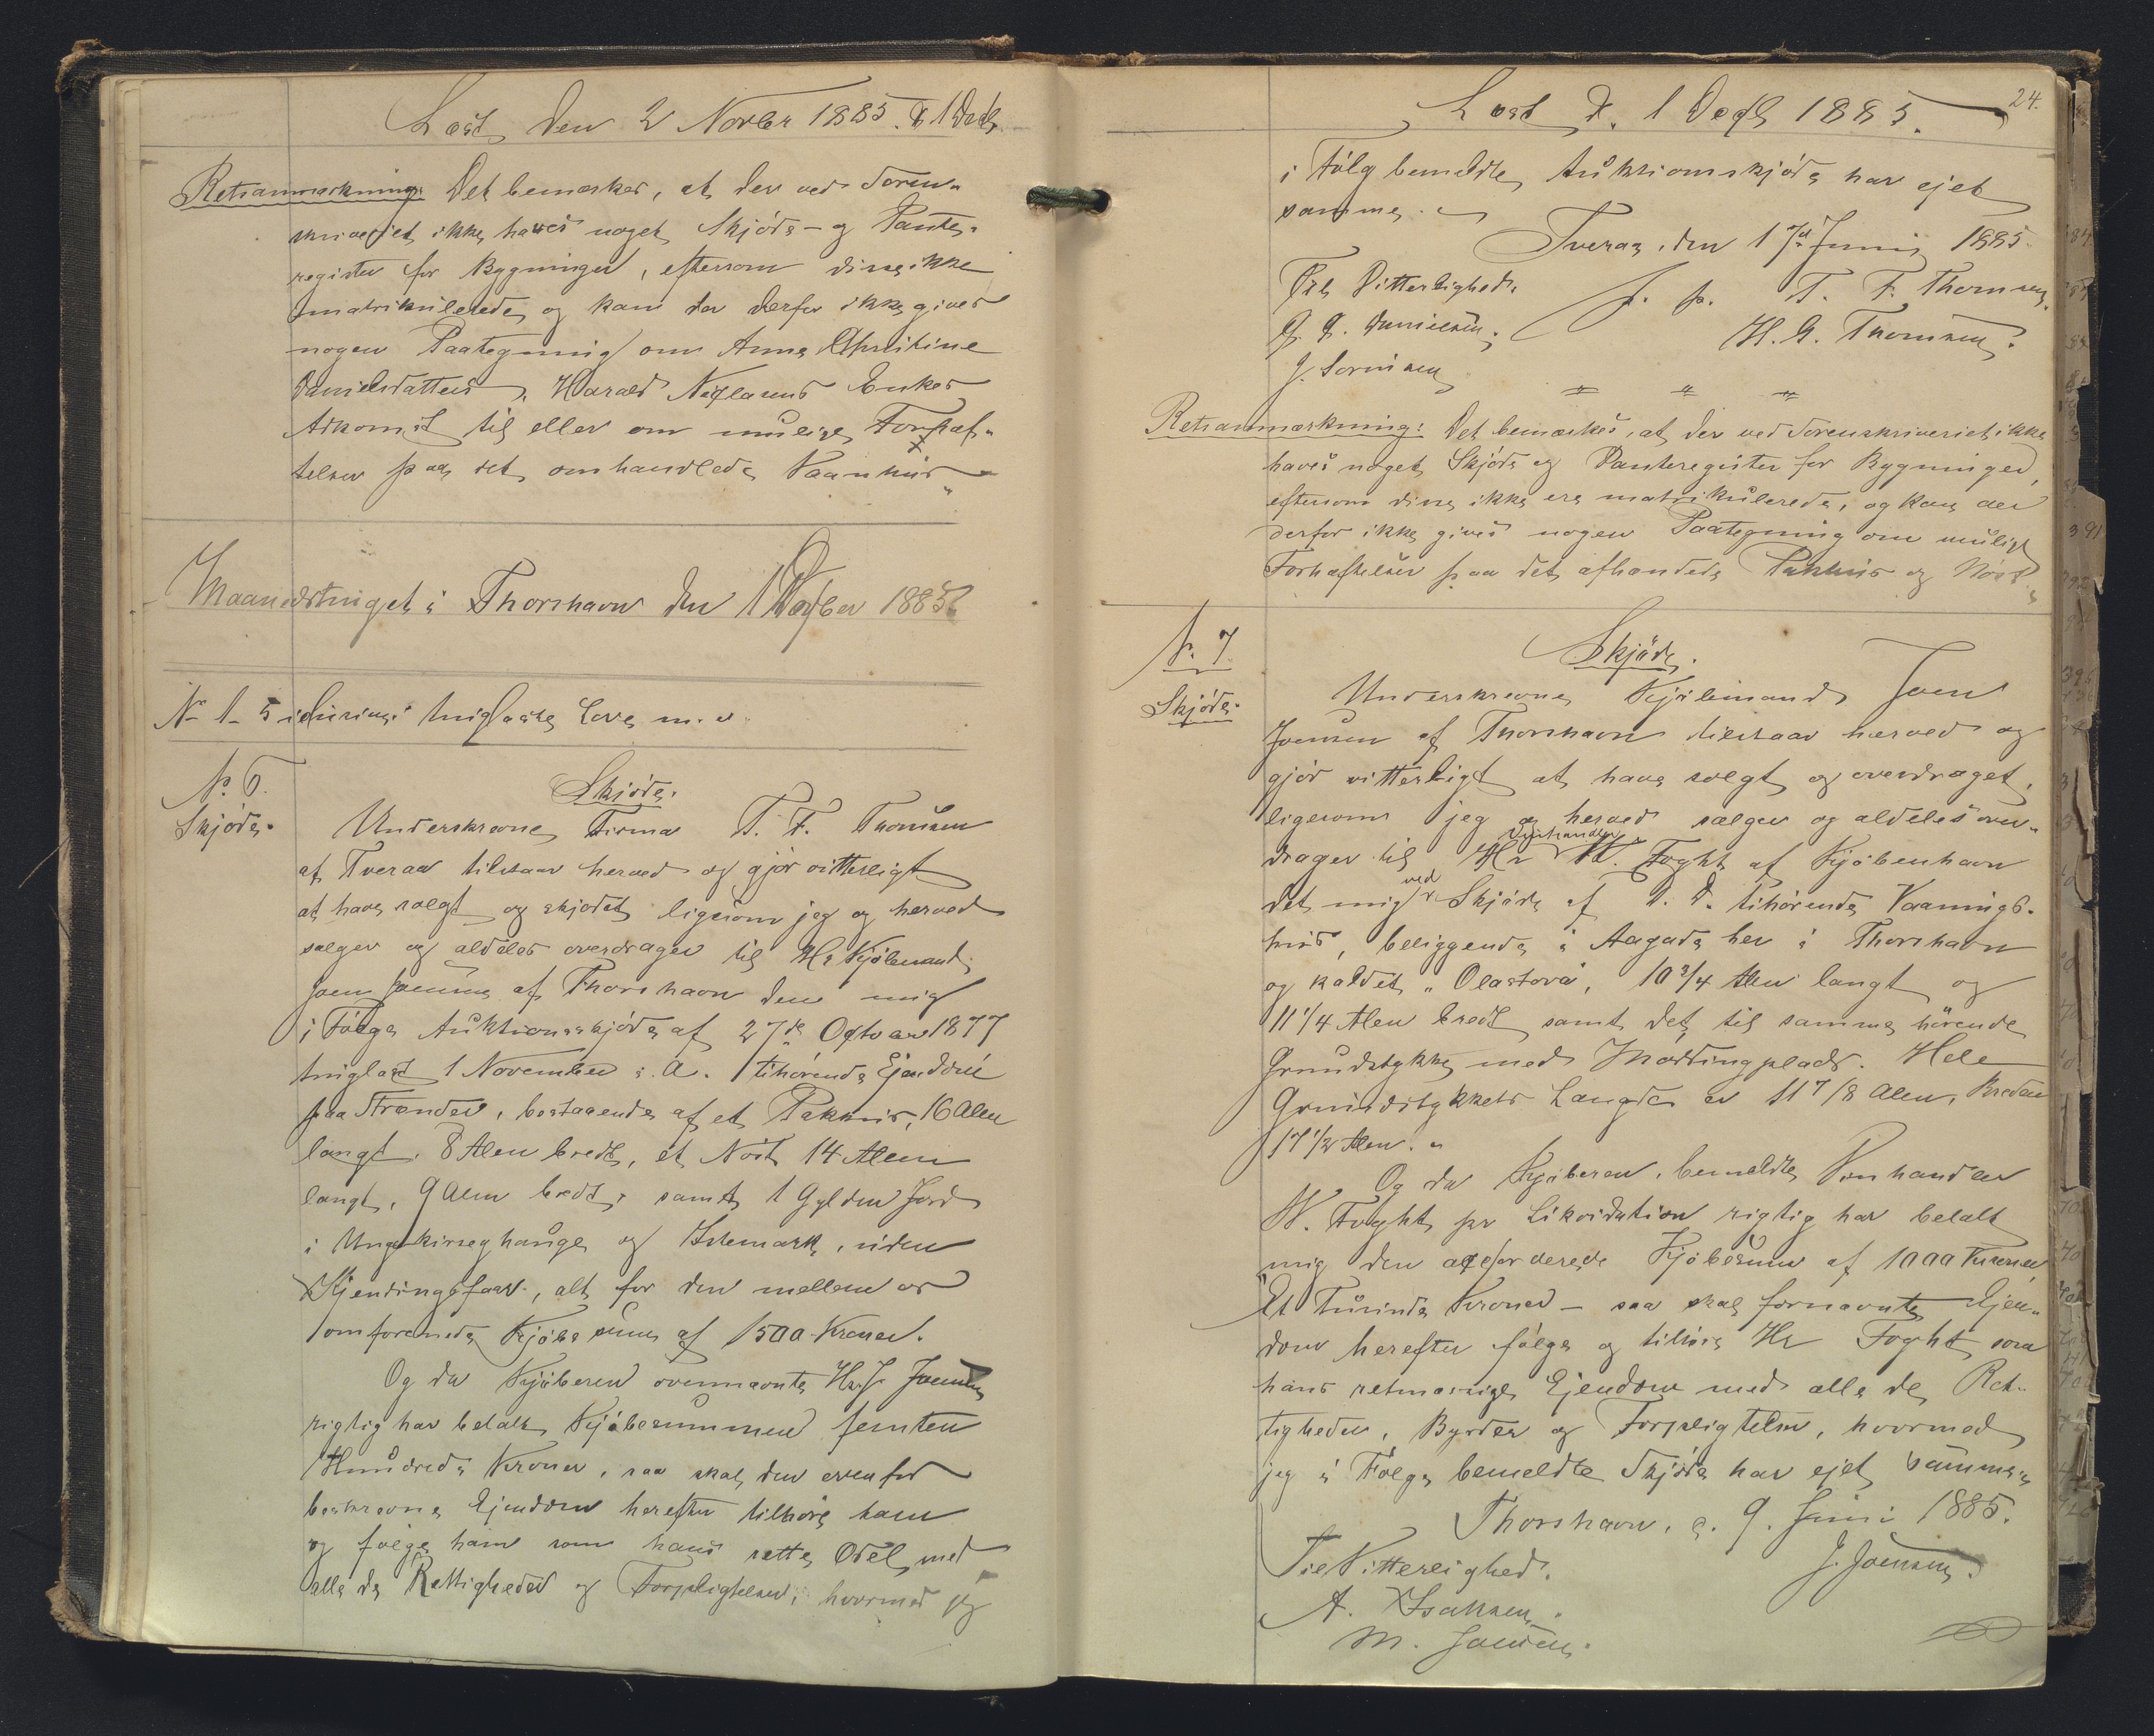 Læst den 2 Novbr 1885. & 1 Decb.
Retsanmærkning: Det bemærkes, at der ved Soren-
skriveriet ikke haves noget Skjöde- og Pante-
register for Bygninger, eftersom disse ikke
matrikulerede og kan der derfor ikke gives
nogen Paategning om Anna Christine
Danielsdatters, Harald Niclasens Enkes
Adkomst til eller om mulige Forhæf-
telser paa det omhandlede Vaanhus.
Maanedstinget i Thorshavn den 1 Decbr 1885.
No 1-5 Love m. v.
No. 6.
Skjöde.
Skjöde.
Underskrevne Firma T. F. Thomsen
af Tveraa tilstaar herved og gjör vitterligt
at have solgt og skjödet ligesom jeg og herved
sælger og aldeles overdrager til Hr Kjöbmand
Joen Joensen af Thorshavn den mig
i Fölge Auktionsskjöde af 27de Octobr 1877
tinglæst 1 November s. A. tilhörende Ejendom
paa Stranden, bestaaende af et Pakhus, 16 Alen
langt, 8 Alen bredt, et Nöst 14 Alen
langt, 9 Alen bredt, samt 1 Gylden Jord
i Ungekirseghauge og Udemark, uden
Kjendingsfaar, alt for den mellem os
omforenede Kjöbesum af 1500 Kroner.
Og da Kjöberen ovennævnte Hr. J. Joensen
rigtig har betalt Kjöbesummen femten
Hundrede Kroner, saa skal den ovenfor
beskrevne Ejendom herefter tilhöre ham
og fölge ham som hans rette Odel, med
alle de Rettigheder og Forpligtelser, hvormed jeg
24.
Læst d. 1 Decb 1885.
i Fölg bemeldte Auktionsskjöde har ejet
samme.
Tveraa, den 17de Juni 1885.
Til Vitterlighed. p. p. T. F. Thomsen
J. D. Danielsen. H. G. Thomsen.
J. Sorensen
Retsanmærkning: Det bemærkes, at der ved Sorenskriveriet ikke
haves noget Skjöde og Panteregister for Bygninger,
eftersom disse ikke ere matrikulerede, og kan der
derfor ikke gives nogen Paategning om mulige
Forhæftelser paa det afhændede Pakhus og Nöst.
No. 7.
Skjöde.
Skjöde.
Underskrevne Kjöbmand Joen
Joensen af Thorshavn tilstaar herved og
gjör vitterligt at have solgt og overdraget,
ligesom jeg og herved sælger og aldeles over-
drager til Hr Vinhandler W. Foght af Kjöbenhavn
det mig ved Skjöde af D. D. tilhörende Vaanings-
hus, beliggende i Aagade her i Thorshavn
og kaldet „Olastova“, 10 3/4 Alen langt og
11 1/4 Alen bredt samt det til samme hörende
Grundstykke med Mödtingplads. Hele
Grundstykkets Længde er 11 7/8 Alen, Bredde
17 1/2 Alen.
Og da Kjöberen, bemeldte Vinhandler
W. Foght pr Likvidation rigtig har betalt
mig den accorderede Kjöbesum af 1000 Kroner
Et Tusinde Kroner — saa skal fornævnte Ejen-
dom herefter fölge og tilhöre Hr Foght som
hans retmæssige Ejendom med alle de Ret-
tigheder, Byrder og Forpligtelser, hvormed
jeg i Fölge bemeldte Skjöde har ejet samme.
Thorshavn, d. 9. Juni 1885.
Til Vitterlighed. J. Joensen.
A. Isaksen.
M. Jensen.